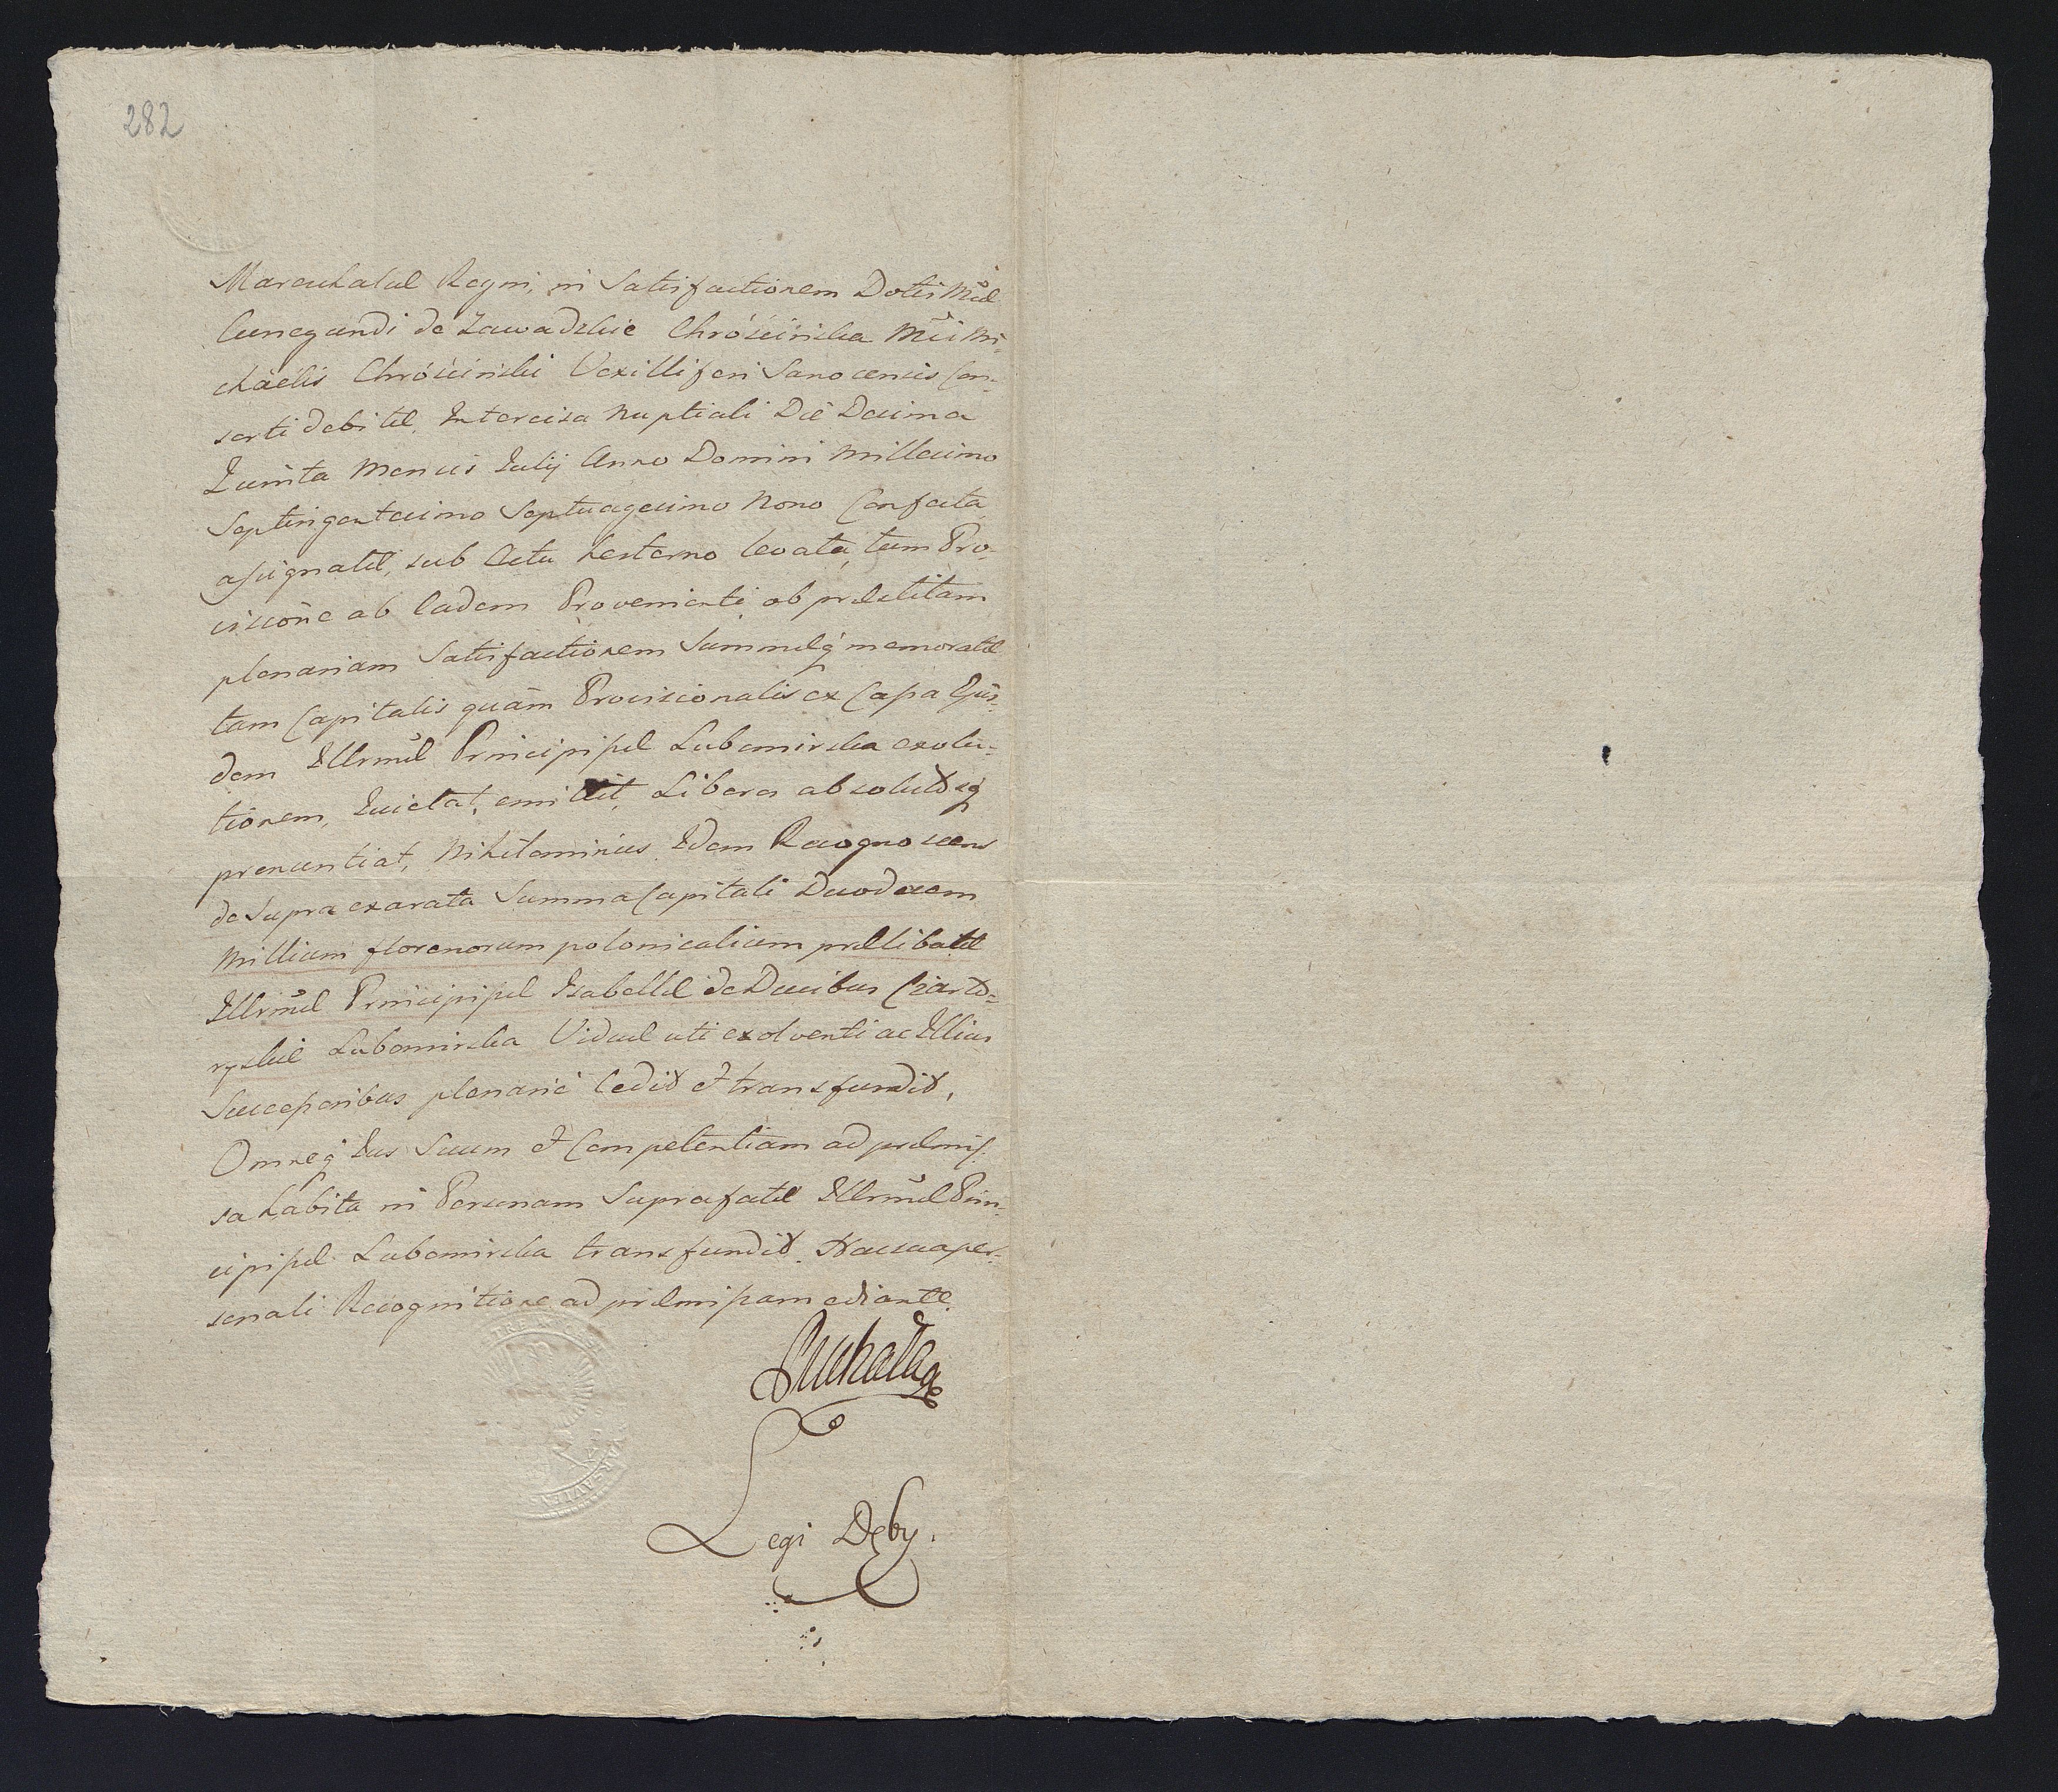 282
Mareschalcæ Regni, in Satisfactionem Dotis Mcæ
Cunegundi de Zawadzkie Chróścińska Mci Mi-
chaëlis Chróściński Vexilliferi Sanocensis Con-
sorti debitæ, Intercisa Nuptiali Die Decima
Quinta Mensis Julij Anno Domini Millesimo
Septingentesimo Septuagesimo Nono Confecta
assignatæ, sub Actu hesterno levata, tum Pro-
visione ab Eadem Provenienti ob præstitam
plenariam Satisfactionem Summæq memoratæ
tam Capitalis quàm Provisionalis ex Cassa Ejus-
dem Illrmæ Principissæ Lubomirska exolu-
tionem, Quietat, emittit, Liberos absolutosq
pronuntiat, Nihilominus Idem Recognoscens
de Supra exarata Summa Capitali Duodecem
Millium florenorum polonicalium prælibatæ
Illrmæ Principissæ Isabellæ de Ducibus Czarto-
ryskie Lubomirska Viduæ uti exolventi ac Illius
Successoribus plenariè Cedit et transfundit,
Omneq Jus Suum et Competentiam ad præmis-
sa habita in Personam Suprafatæ Illrmæ Prin-
cipissæ Lubomirska transfundit. Hacsua per-
sonali Recognitione ad præmissa mediante.
Legi Dęby.